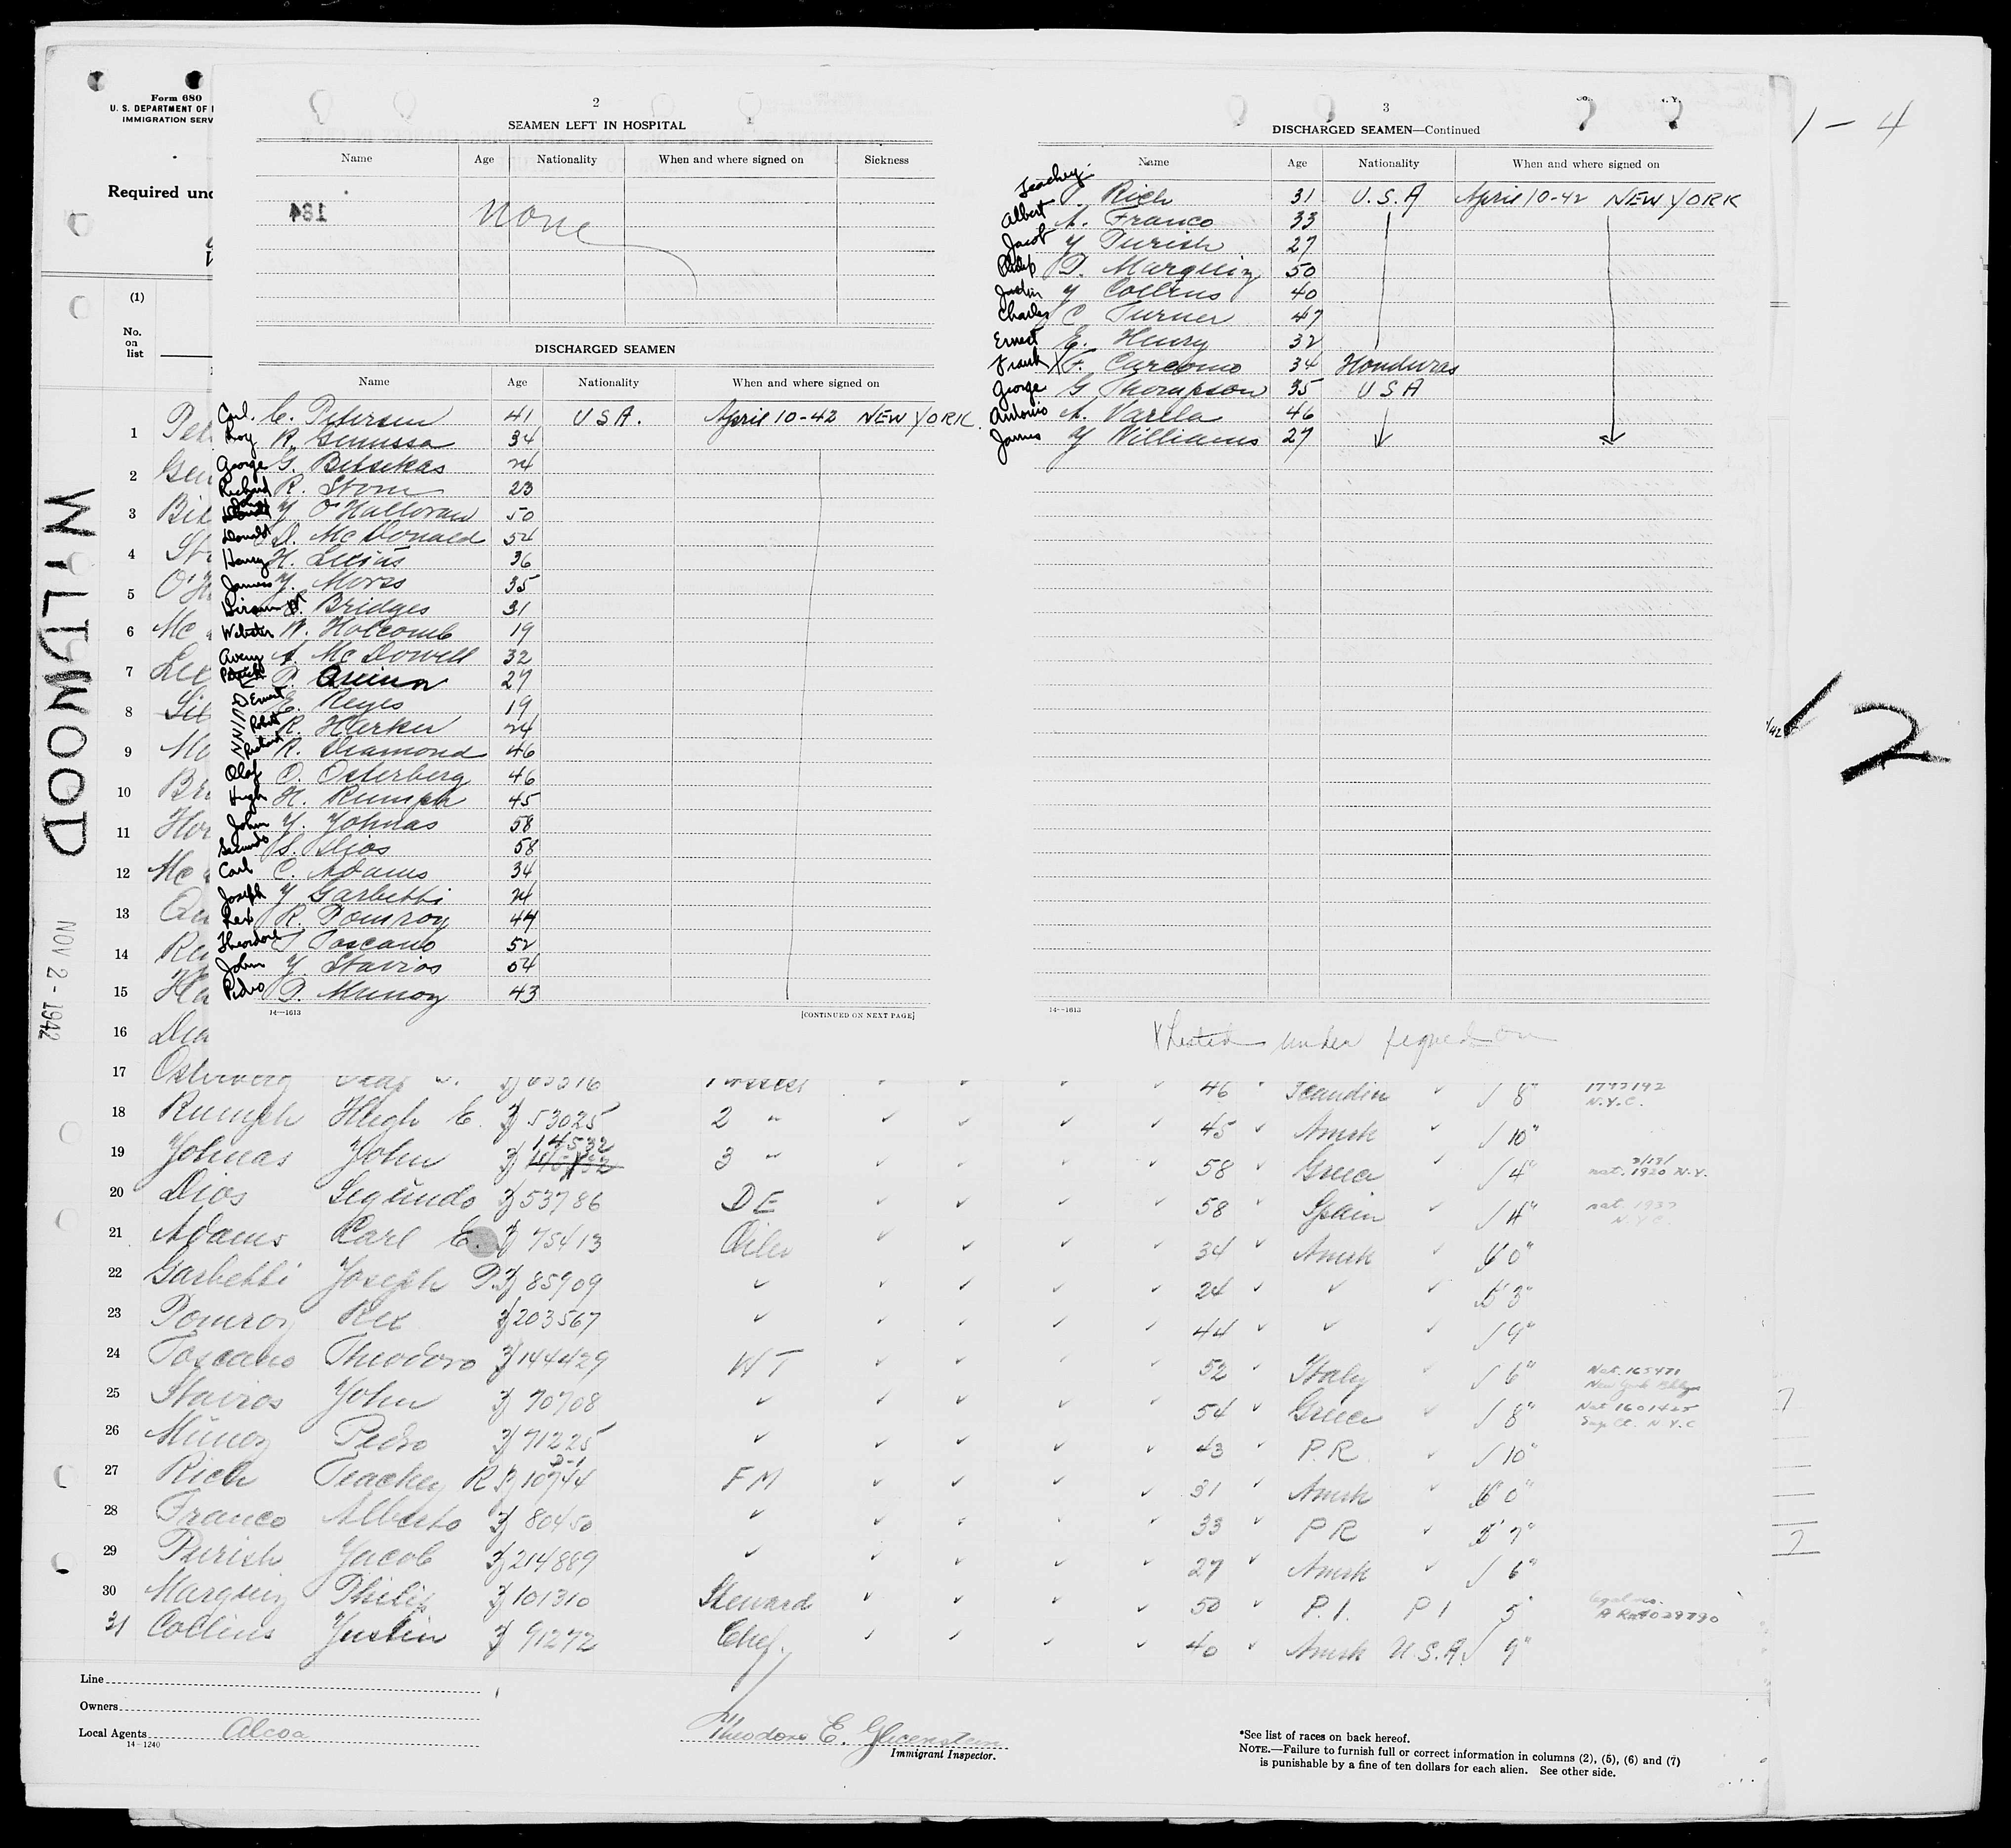 Form 680
U. S. DEPARTMENT OF
IMMIGRATION SERV
Required und
(1)
No.
on
list
WILDWOOD
NOV 2 - 1942
2
SEAMEN LEFT IN HOSPITAL
Name Age Nationality When and where signed on Sickness
184
None
DISCHARGED SEAMEN
Name Age Nationality When and where signed on
Carl. C. Petersen 41 U S A. April 10-42 NEW YORK.
Roy R. Genussa 34
George G. Bitsikas 24
Richard R. Strom 23
Y O'Halloran 50
Donald D. McDonald 54
Henry H. Lecins 36
James Y. Moress 35
Hiram H. Bridges 31
Webster W. Holcomb 19
Avery A. McDowell 32
Patrick P. Quinn 27
Ernest E. Reyes 19
Robert R. Harker 24
Richard R. Diamond 46
Olaf O. Osterberg 46
Hugh H. Rumph 45
John Y. Yohnas 58
Segundo S. Dios 58
Carl C. Adams 34
Joseph Y Garbetti 24
Rex R. Pomroy 44
Theodore T Toscano 52
John Y Stavros 54
Pedro P. Munoz 43
14—1613 [CONTINUED ON NEXT PAGE]
3
DISCHARGED SEAMEN—Continued
Name Age Nationality When and where signed on
Teachey T. Rich 31 U.S.A April 10-42 NEW YORK
Albert A. Franco 33
Jacob Y Purish 27
Philip P. Marquiz 50
Justin Y Collins 40
Charles C Turner 47
Ernest E. Henry 32
Frank X F. Carcomo 34 Honduras
George G Thompson 35 U S A
Antonio A. Varela 46
James Y Williams 27
14—1613
X Listed under signed on
1 - 4
12
1 Pet
2 Gen
3 Bit
4 Str
5 O'H
6 Mc
7 Lec
8
9 Mo
10 Bri
11 Hol
12 Mc
13 Qu
14 Re
15 Ha
16 Dia
17 Osterberg Olaf 63316 46 Scandin 8" 1793192 N.Y.C.
18 Rumph Hugh E. 53025 2 " 45 Amrk 10"
19 Yohnas John 14532 3 " 58 Greece 4" nat. 1920 N.Y.
20 Dios Segundo 53786 DE 58 Spain 4" nat. 1937 N.Y.C.
21 Adams Carl E. 75413 Oiler 34 Amrk 0"
22 Garbetti Joseph P. 85909 24 3"
23 Pomroy Rex 203567 44 9"
24 Toscano Theodoro 144429 WT 52 Italy 6" Nat. 165471
25 Stavros John 70708 54 Greece 8" Nat 1601425 Sup Ct. N.Y.C
26 Munoz Pedro 71225 43 P.R. 10"
27 Rich Teachey R 10744 FM 31 Amrk 0"
28 Franco Alberto 80450 33 PR 7"
29 Purish Jacob 214889 27 Amrk 6"
30 Marquiz Philip 101310 Steward 50 P.I. P I 5"
31 Collins Justin 91272 Chef. 40 Amrk U.S.A. 9"
Line
Owners
Local Agents Alcoa
14—1240
Theodore E. Glicenstein
Immigrant Inspector.
*See list of races on back hereof.
NOTE.—Failure to furnish full or correct information in columns (2), (5), (6) and (7)
is punishable by a fine of ten dollars for each alien. See other side.